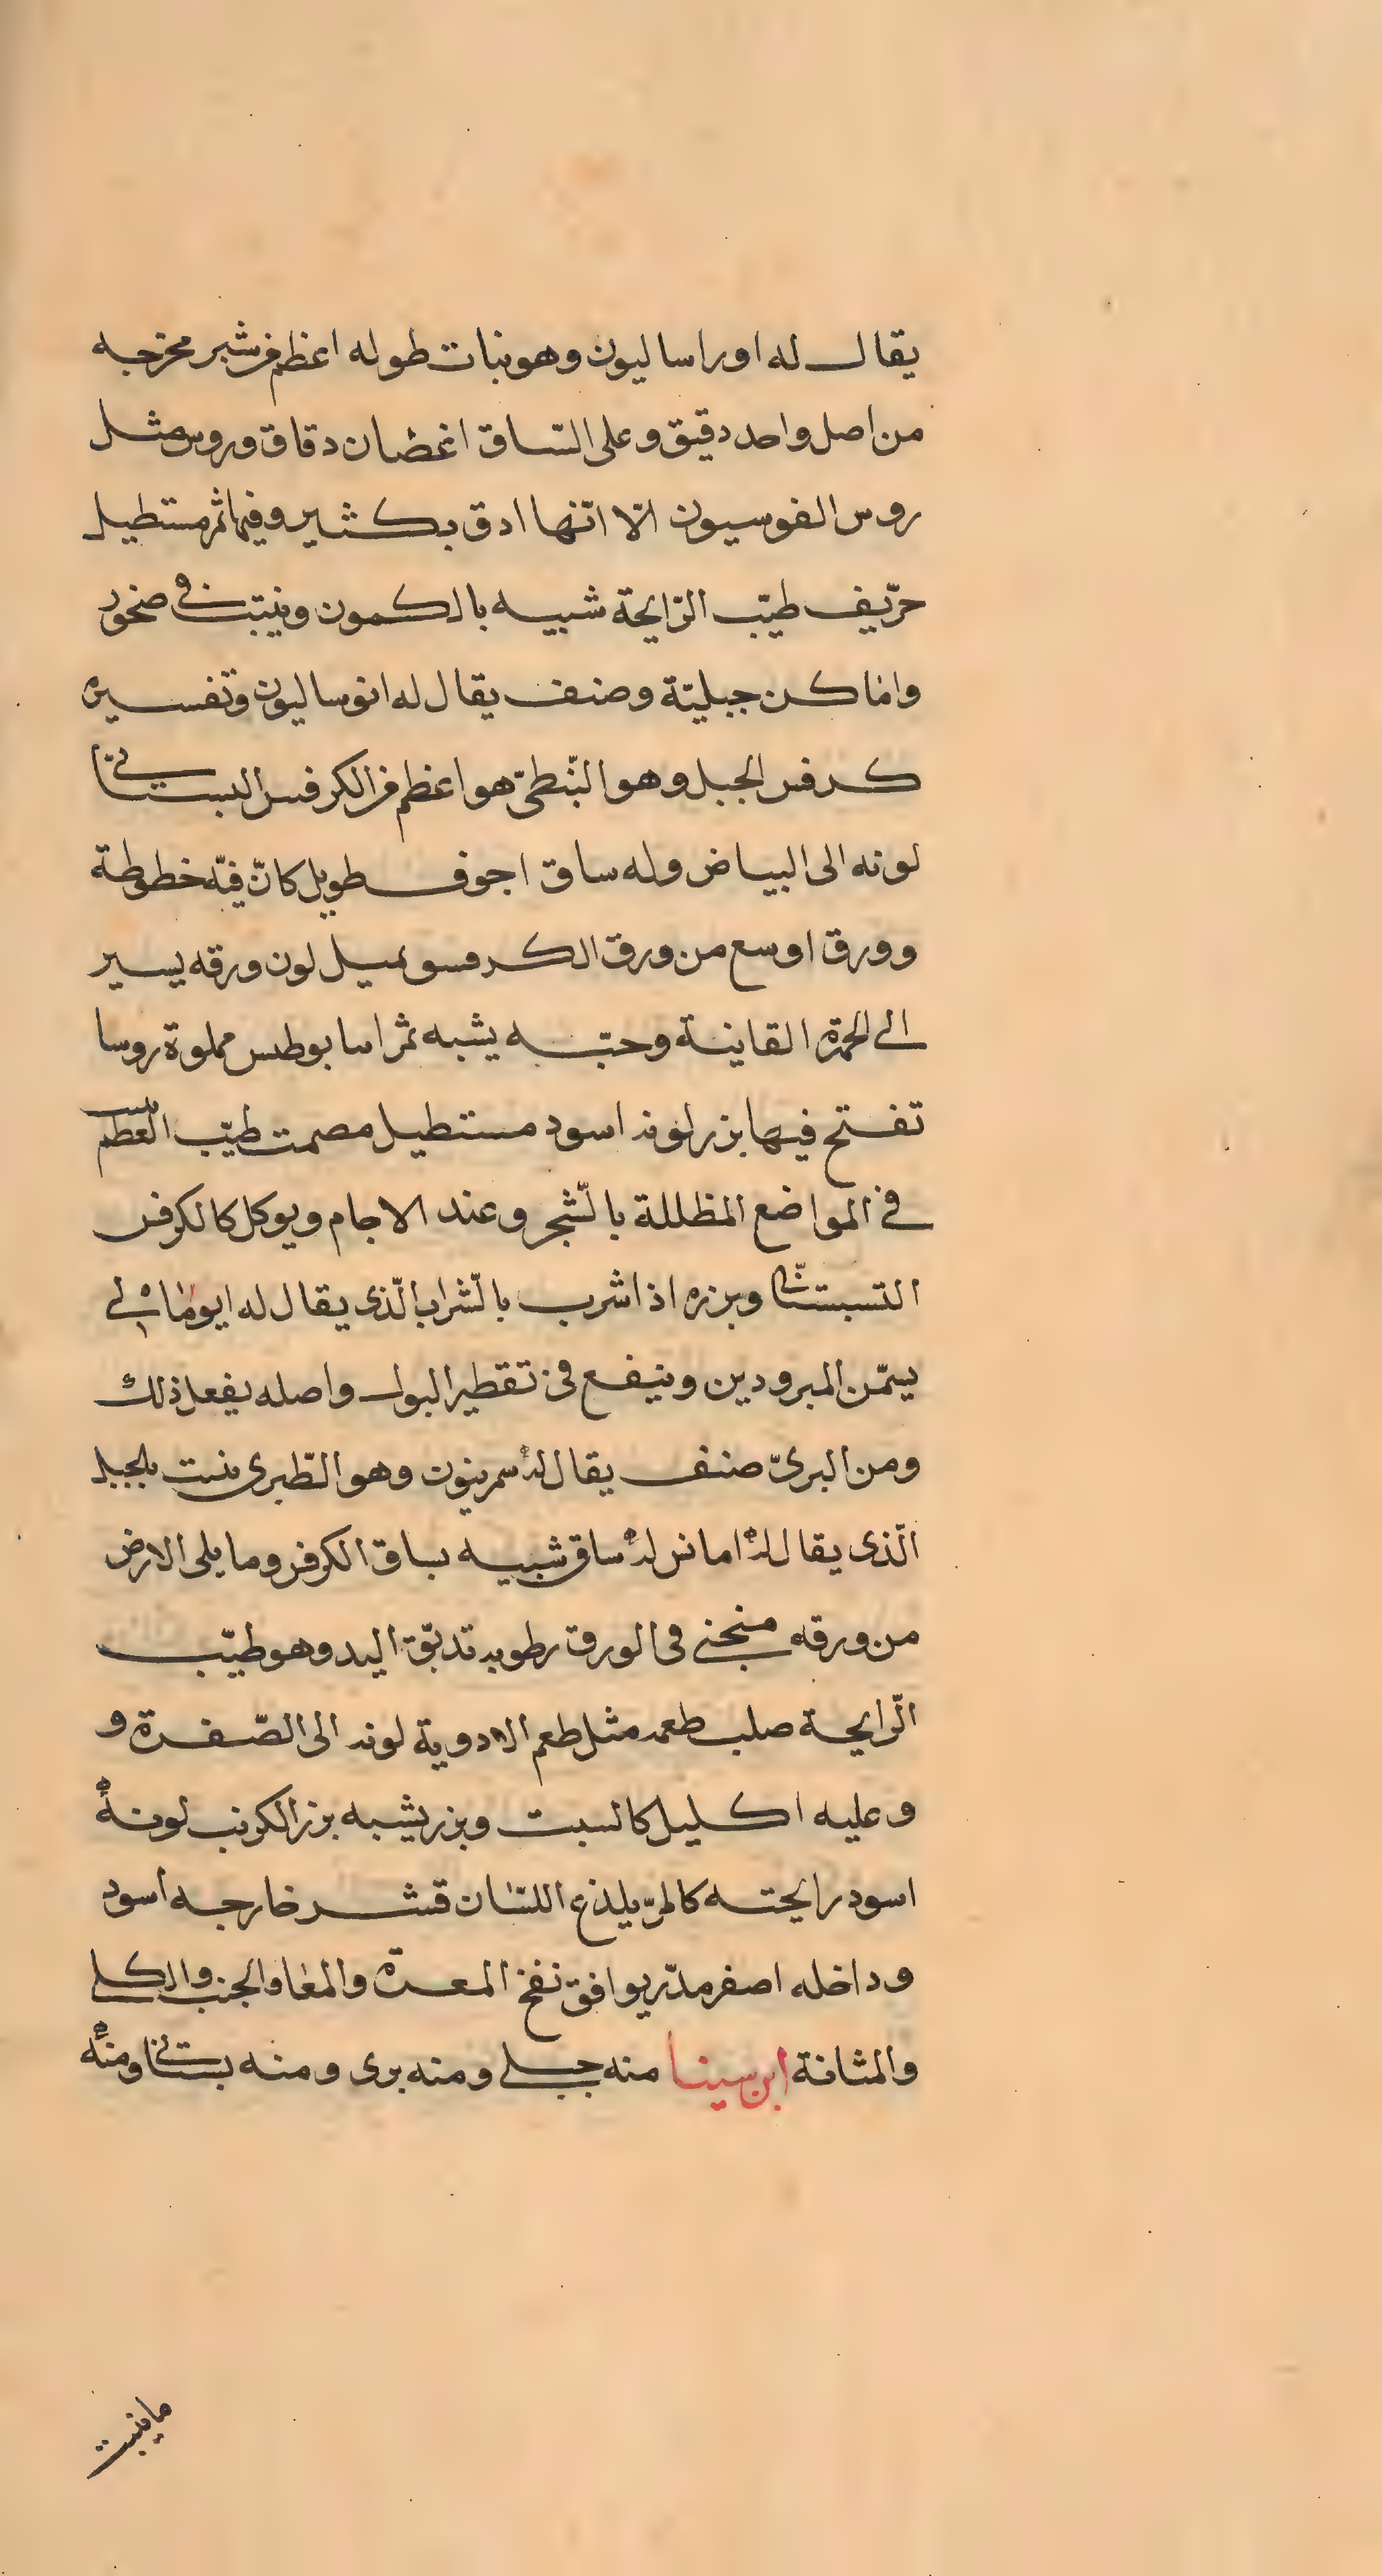 يقال له اوراساليون وهو نبات طوله اعظم من شبر مخرجه
من اصل واحد دقيق وعلى السّاق اغصان دقاق وروس مثل
روس الفوسيون الّا انّها ادق بكثير وفيها ثمر مستطيل
حرّيف طيّب الرّايحة شبيه بالكمون وينبت في صخور
واماكن جبليّة وصنف يقال له انوساليون وتفسيره
كرفس الجبل وهو النّبطىّ هو اعظم من الكرفس البستانّي
لونه الى البياض وله ساق اجوف طويل كانّ فيه خطوطة
وورق اوسع من ورق الكرفس ويميل لون ورقه يسير
الى الحمرة القاينة وحبّه يشبه ثمر اسابوطس مملوة روسا
تفتح فيها بزر لونه اسود مستطيل مصمت طيّب الطعم ينبت
في المواضع المظللة بالشّجر وعند الاجام ويوكل كالكرفس
التسبستانّى وبزره اذا شرب بالشّراب الّذى يقال له ايومالى
يسمّن المبرودين وينفع في تقطير البول واصله يفعل ذلك
ومن البرىّ صنف يقال له سمرينون وهو الطّبرى ينبت بالجبل
الّذى يقال له امانس له ساق شبيه بساق الكرفس وما يلى الارض
من ورقه منحني في الورق رطوبه تدبّق اليد وهو طيّب
الرّايحة صلب طعمه مثل طعم الادوية لونه الى الصّفرة و
وعليه اكليل كالسبت وبزر يشبه بزر الكرنب لونه
اسود رايحته كالمرّ يلذع اللسّان قشر خارجه اسود
وداخله اصفر مدّر يوافق نفخ المعدة والمعا والجنب والكلى
والمثانة ابن سينا منه جبلي ومنه برى ومنه بستاني ومنه
ما ينبت